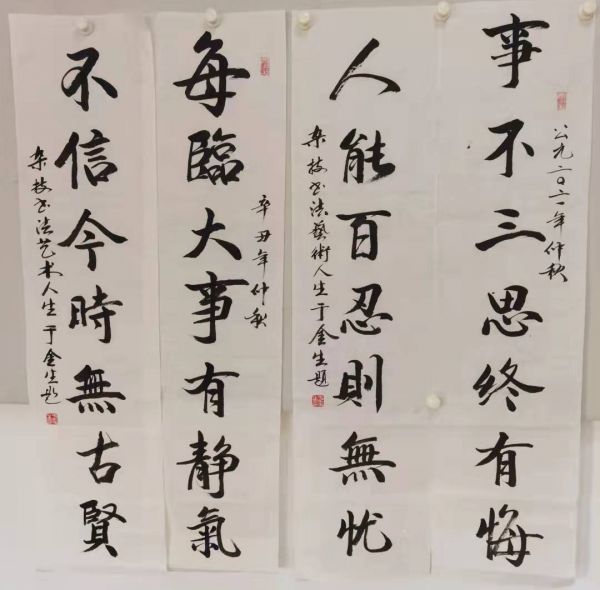 事不三思終有悔
公元二〇二一年仲秋
人能百忍則無忧
杂技书法藝術人生于金生题
每臨大事有静氣
辛丑年仲秋
不信今時無古賢
杂技书法艺术人生于金生题